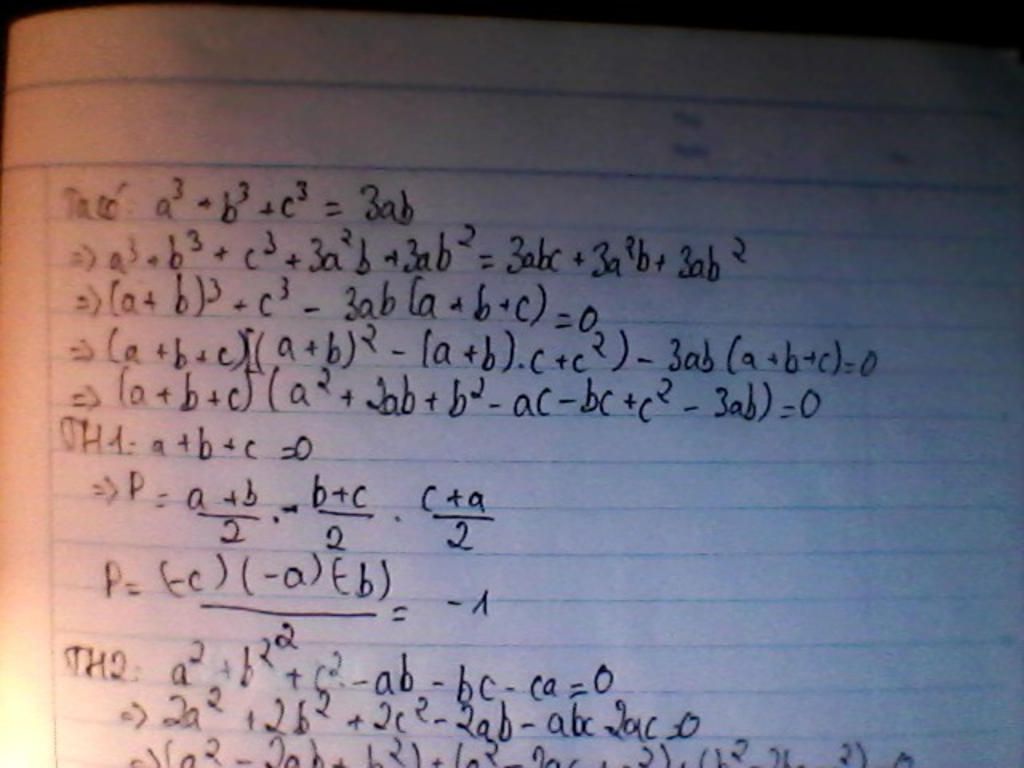 Ta có: a³ + b³ + c³ = 3ab
=> a³ + b³ + c³ + 3a²b + 3ab² = 3abc + 3a²b + 3ab²
=> (a + b)³ + c³ - 3ab(a + b + c) = 0
=> (a + b + c)((a + b)² - (a + b).c + c²) - 3ab(a + b + c) = 0
=> (a + b + c)(a² + 2ab + b² - ac - bc + c² - 3ab) = 0
TH1: a + b + c = 0
=> P = (a + b)/2 . (b + c)/2 . (c + a)/2
P = (-c)(-a)(-b)/2 = -1
TH2: a² + b² + c² - ab - bc - ca = 0
=> 2a² + 2b² + 2c² - 2ab - abc 2ac = 0
=> (a² - 2ab + b²) + (a² - 2ac +